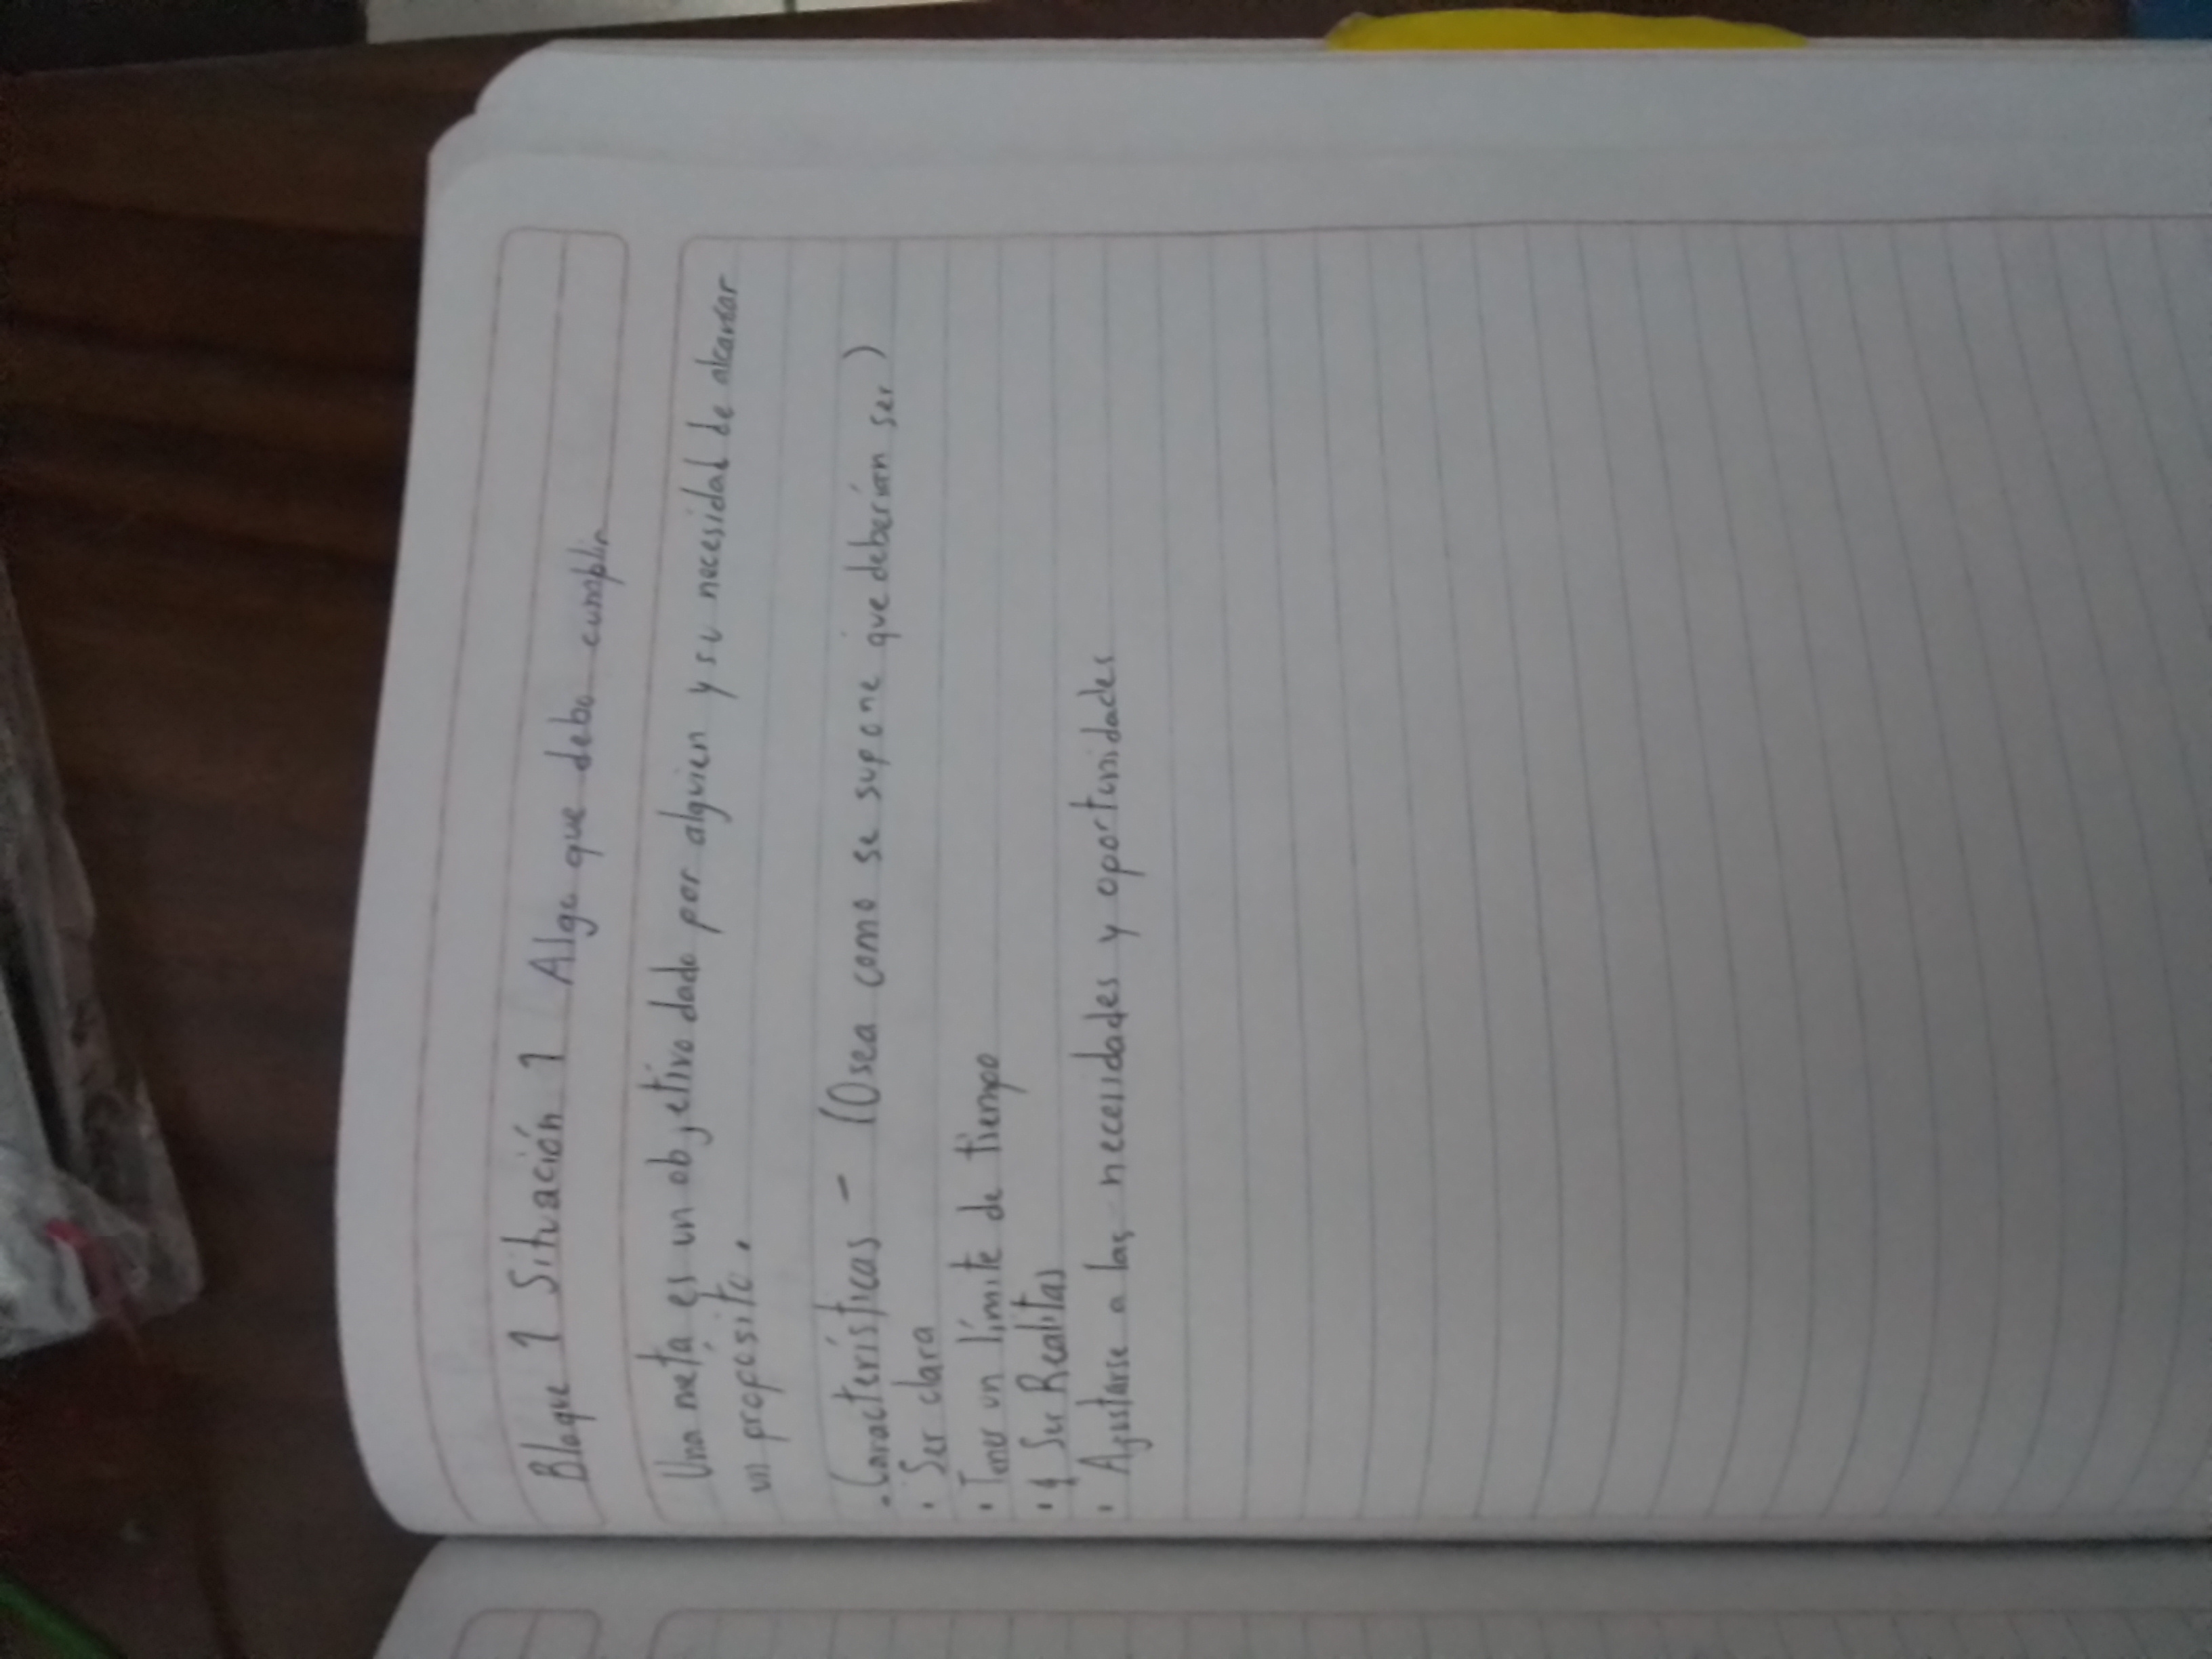 Bloque 1 Situación 1 Algo que debo cumplir
Una meta es un objetivo dado por alguien y su necesidad de alcanzar
un proposito.
• Características - (Osea como se supone que deberían ser)
• Ser clara
• Tener un límite de tiempo
• Ser Realitas
• Ajustarse a las necesidades y oportunidades